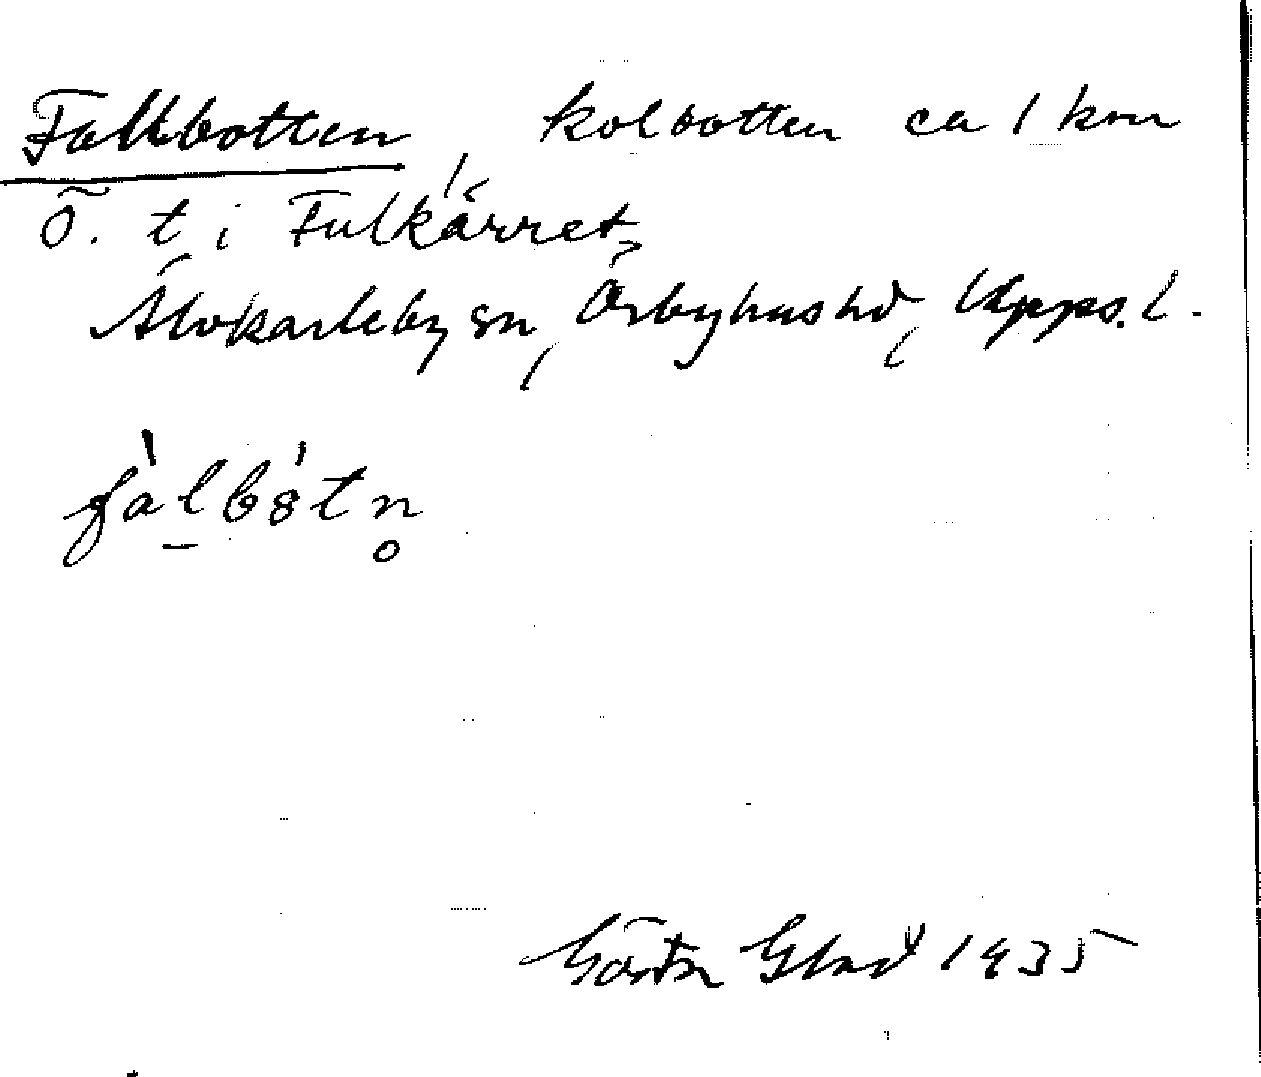 Fallbotten, kolbotten ca 1 km
Ö. t i Fulkärret,
Älvkarleby sn, Örbyhus hd, Upps. l.
fàlbòtn̥
Gösta Glad 1935